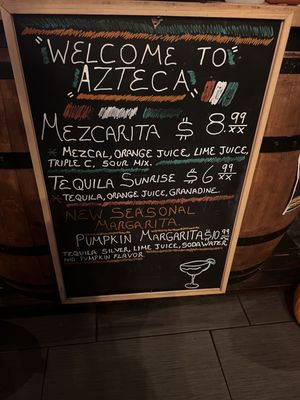 "WELCOME TO"
"AZTECA"
MEZCARITA $8.99
xx
* MEZCAL, ORANGE JUICE, LIME JUICE,
TRIPLE C, SOUR MIX.
TEQUILA SUNRISE $6.99
xx
* TEQUILA, ORANGE JUICE, GRANADINE.
NEW SEASONAL
MARGARITA
PUMPKIN MARGARITA $10.99
xx
TEQUILA SILVER, LIME JUICE, SODA WATER
AND PUMPKIN FLAVOR